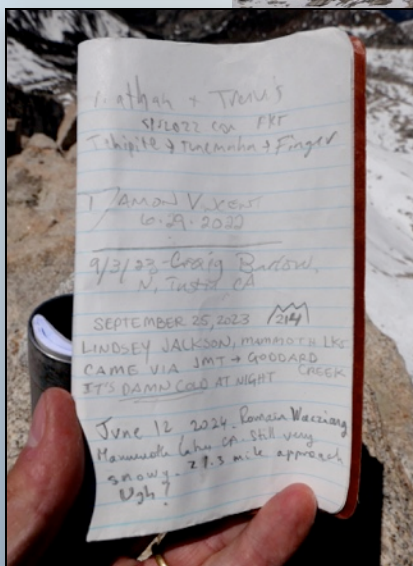 Nathan & Travis
5/1/2022 FKT
Tehipite → Tunemah → Finger
DAMON V. VENT
6.29.2022
9/3/23 - Craig Barlow,
N, Tustin CA
SEPTEMBER 25, 2023 214
LINDSEY JACKSON, MAMMOTH LKS
CAME VIA JMT → GODDARD
CREEK
IT'S DAMN COLD AT NIGHT
June 12 2024. Romain Wacziarg
Mammoth Lakes CA. Still very
snowy. 27.5 mile approach
Ugh!